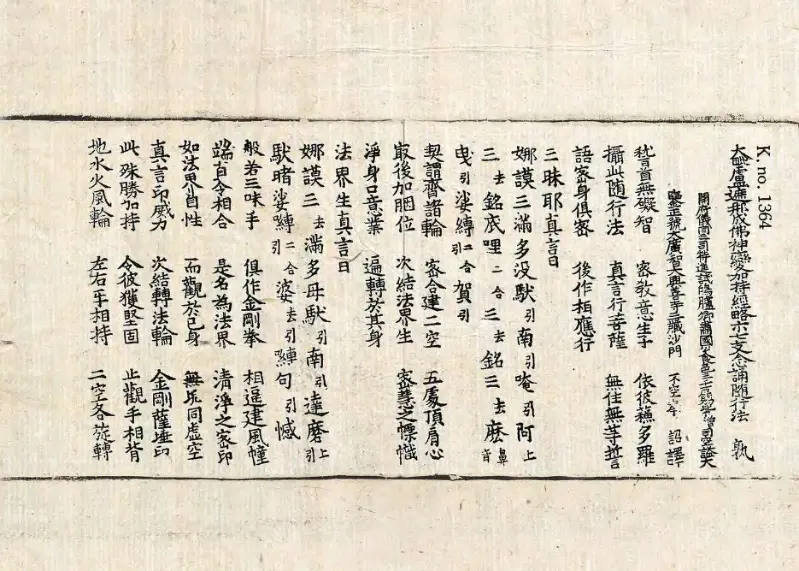 K. no. 1364
大毗盧遮那成佛神變加持經略示七支念誦隨行法 孰
開府儀同三司特進試鴻臚卿肅國公食邑三千戶賜紫贈司空謚大
鑒正號大廣智大興善寺三藏沙門 不空奉 詔譯
稽首無礙智 密教意生子 依彼蘇多羅
攝此隨行法 真言行菩薩 無住無等誓
語密身俱密 後作相應行
三昧耶真言曰
娜謨三滿多没馱引南引唵引阿上
三去銘底哩二合三去銘三去麽鼻音
曳引娑嚩二合引賀引
契謂齊諸輪 密合建二空 五處頂肩心
最後加咽位 次結法界生 密慧之幖幟
淨身口意業 遍轉於其身
法界生真言曰
娜謨三去滿多母馱引南引達磨上引
馱睹娑嚩二合引婆去引縛句引憾
般若三昧手 俱作金剛拳 相逼建風幢
端直令相合 是名為法界 清淨之密印
如法界自性 而觀於己身 無垢同虛空
真言印威力 次結轉法輪 金剛薩埵印
此殊勝加持 令彼獲堅固 止觀手相背
地水火風輪 左右互相持 二空各旋轉